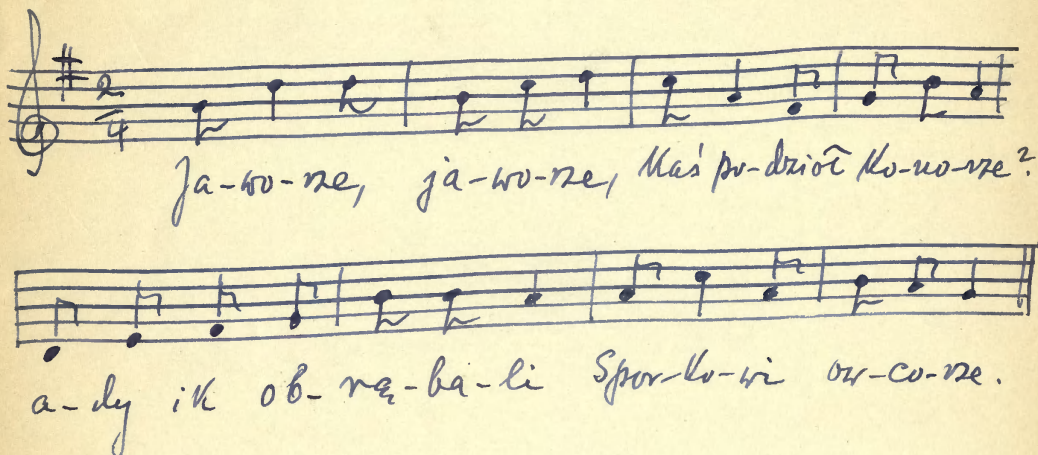 2/4
Ja-wo-rze, ja-wo-rze, Kaś po-dzioł ko-no-rze?
a-dy ik ob-rą-ba-li Spor-ko-wi ow-co-rze.